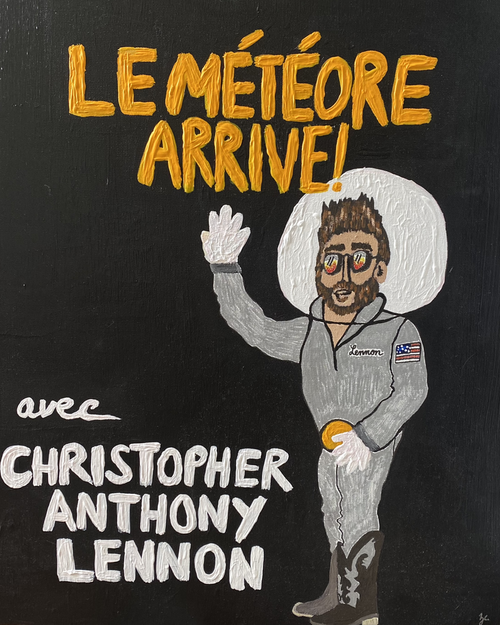 LE MÉTÉORE
ARRIVE!
Lennon
avec
CHRISTOPHER
ANTHONY
LENNON